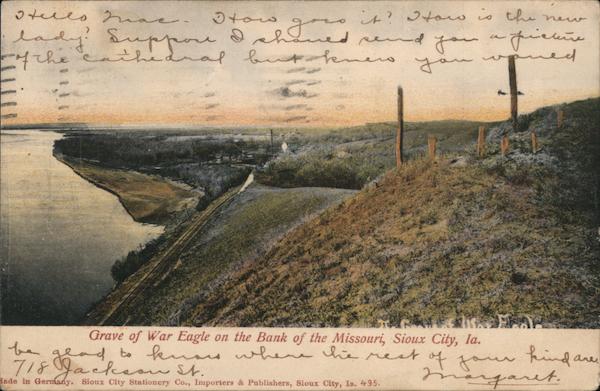 Hello Mac. How goes it? How is the new
lady? Suppose I should send you a picture
of the cathedral but knew you would
Grave of War Eagle
Grave of War Eagle on the Bank of the Missouri, Sioux City, Ia.
be glad to know where the rest of your kind are
718 Jackson St. Margaret.
Made in Germany. Sioux City Stationery Co., Importers & Publishers, Sioux City, Ia. 495.